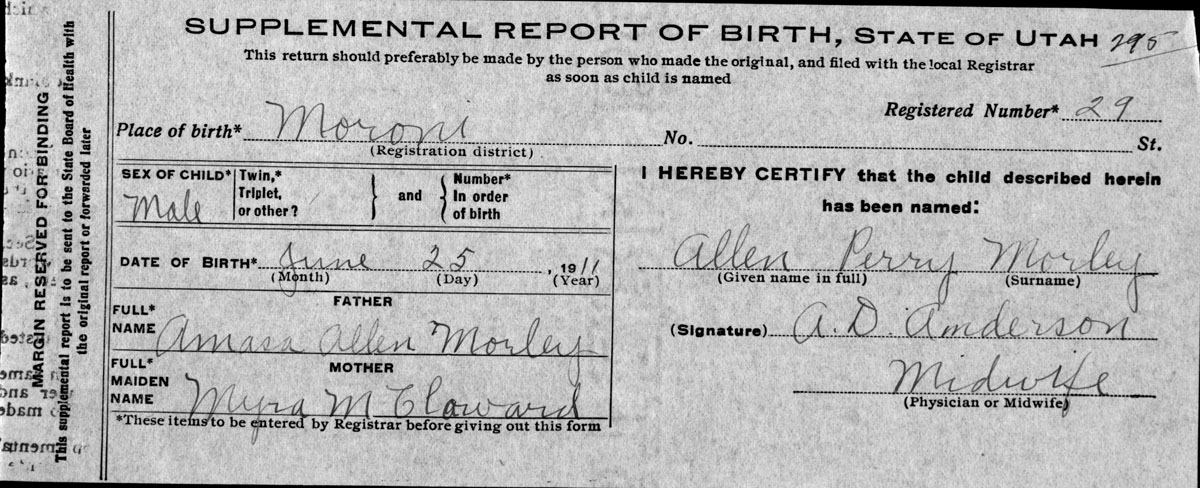 SUPPLEMENTAL REPORT OF BIRTH, STATE OF UTAH 295
This return should preferably be made by the person who made the original, and filed with the local Registrar
as soon as child is named
Registered Number* 29
Place of birth* Moroni No. St.
(Registration district)
SEX OF CHILD* Male
Twin,*
Triplet,
or other?
and
Number*
In order
of birth
DATE OF BIRTH* June 25, 1911
(Month) (Day) (Year)
FATHER
FULL*
NAME Amasa Allen Morley
MOTHER
FULL*
MAIDEN
NAME Myra M Claward
*These items to be entered by Registrar before giving out this form
I HEREBY CERTIFY that the child described herein
has been named:
Allen Perry Morley
(Given name in full) (Surname)
(Signature) A. D. Anderson
Midwife
(Physician or Midwife)
MARGIN RESERVED FOR BINDING
This supplemental report is to be sent to the State Board of Health with
the original report or forwarded later